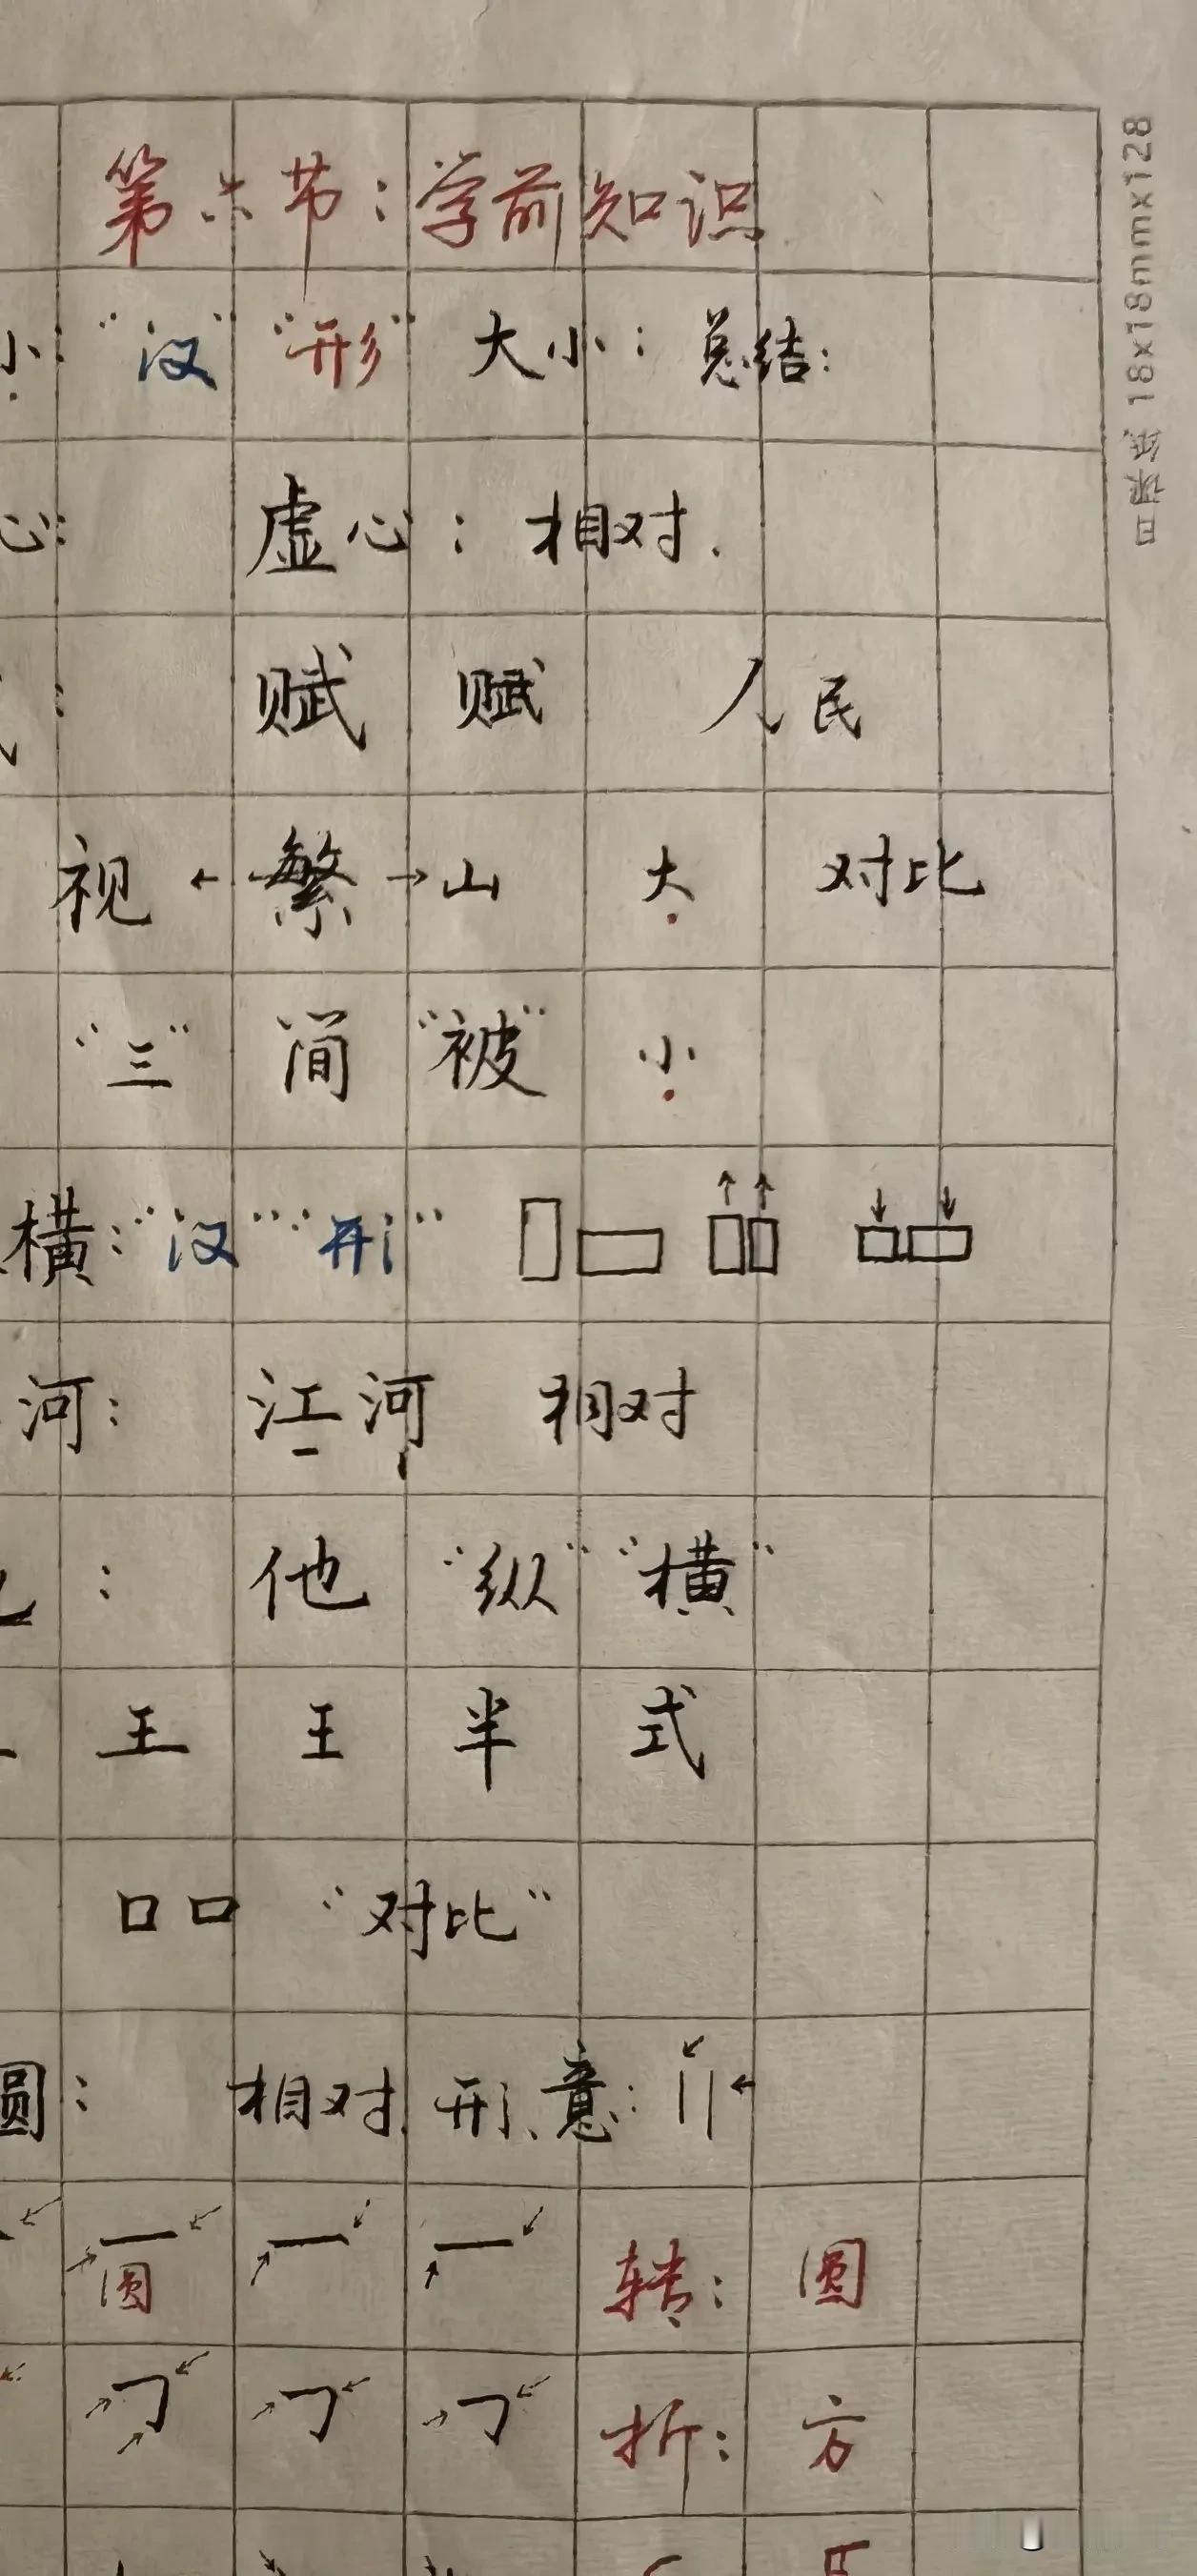 第六节：学前知识
小："汉" "形" 大小：总结：
心： 虚心：相对．
： 赋 赋 人民
视 ← 繁 → 山 大 对比
"三" 简 "被" 小
横："汉" "形" ↑ ↑ ↓ ↓
河： 江河 相对
： 他 "纵" "横"
王 王 半 式
口口 "对比"
圆： 相对、形、意：
圆 转： 圆
折： 方
日课纸 18x18mmx128